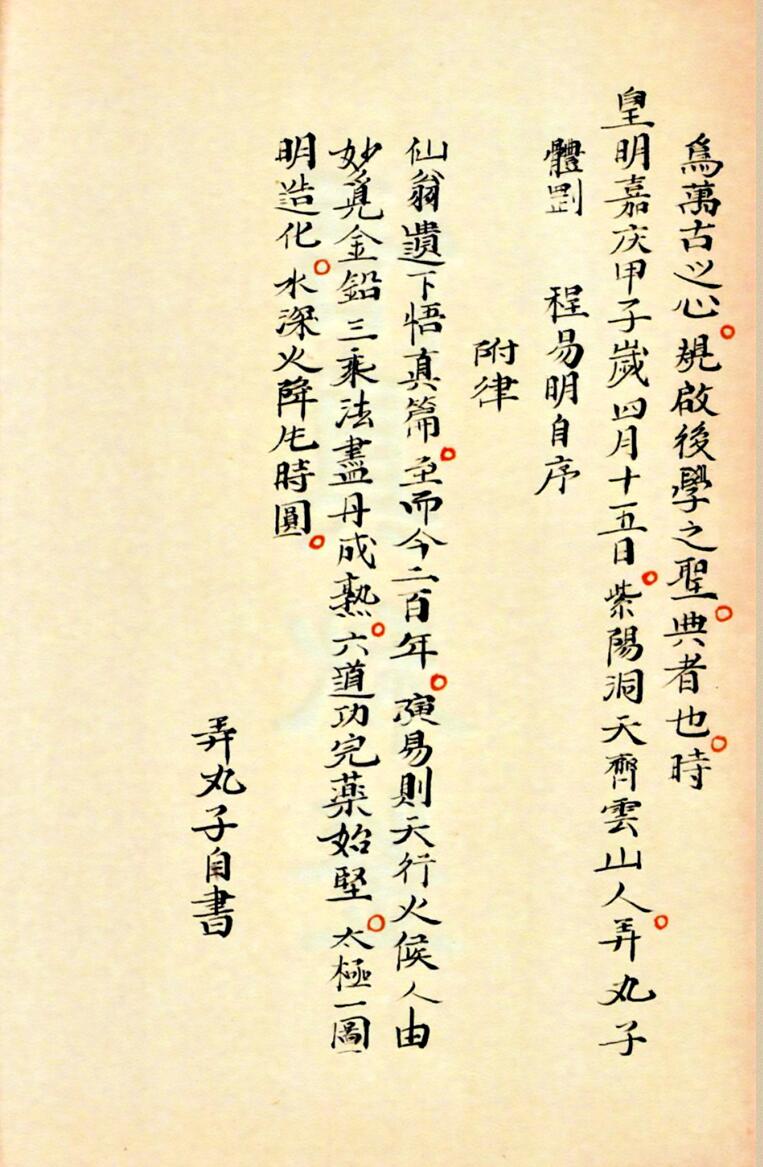 爲萬古之心。規啟後學之聖。典者也。時
皇明嘉庆甲子歲四月十五日。紫陽洞天齊雲山人。弄丸子
體罡　程易明自序
附律
仙翁遺下悟真篇。至而今二百年。演易則天行火候人由
妙覓金鉛三乘法晝丹成熟。六道功完薬始堅。太極一圖
明造化。水深火降生時圓。
弄丸子自書